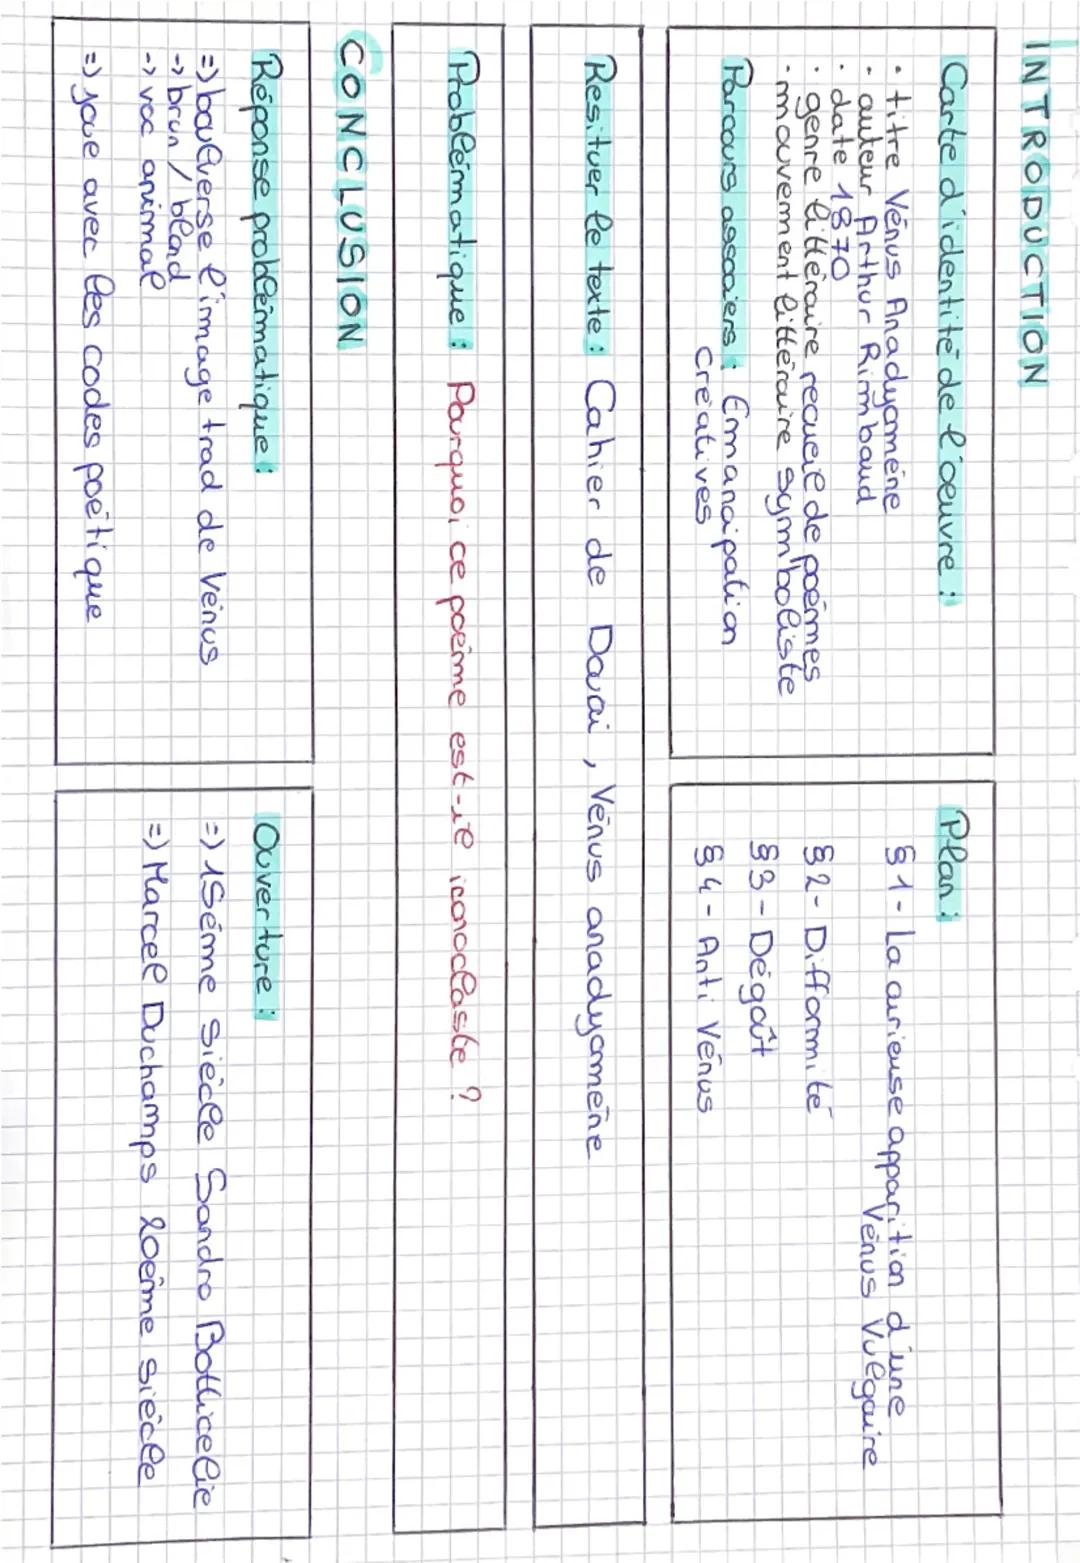 INTRODUCTION
Carte d'identité de l'oeuvre :
• titre Vénus Anadyomène
• auteur Arthur Rimbaud
• date 1870
• genre littéraire recueil de poèmes
• mouvement littéraire symboliste
Parcours associers : Emancipation
créatives
Plan :
§1 - La curieuse apparition d'une
Vénus Vulgaire
§2 - Difformité
§3 - Dégoût
§4 - Anti Vénus
Resituer le texte : Cahier de Douai, Vénus anadyomène
Problématique : Pourquoi ce poème est-il iconoclaste ?
CONCLUSION
Réponse problématique :
=> boulverse l'image trad de Vénus
-> brun / blond
-> voc animal
=> joue avec les codes poétique
Ouverture :
=> 15ème siècle Sandro Botticellie
=> Marcel Duchamps 20ème siècle